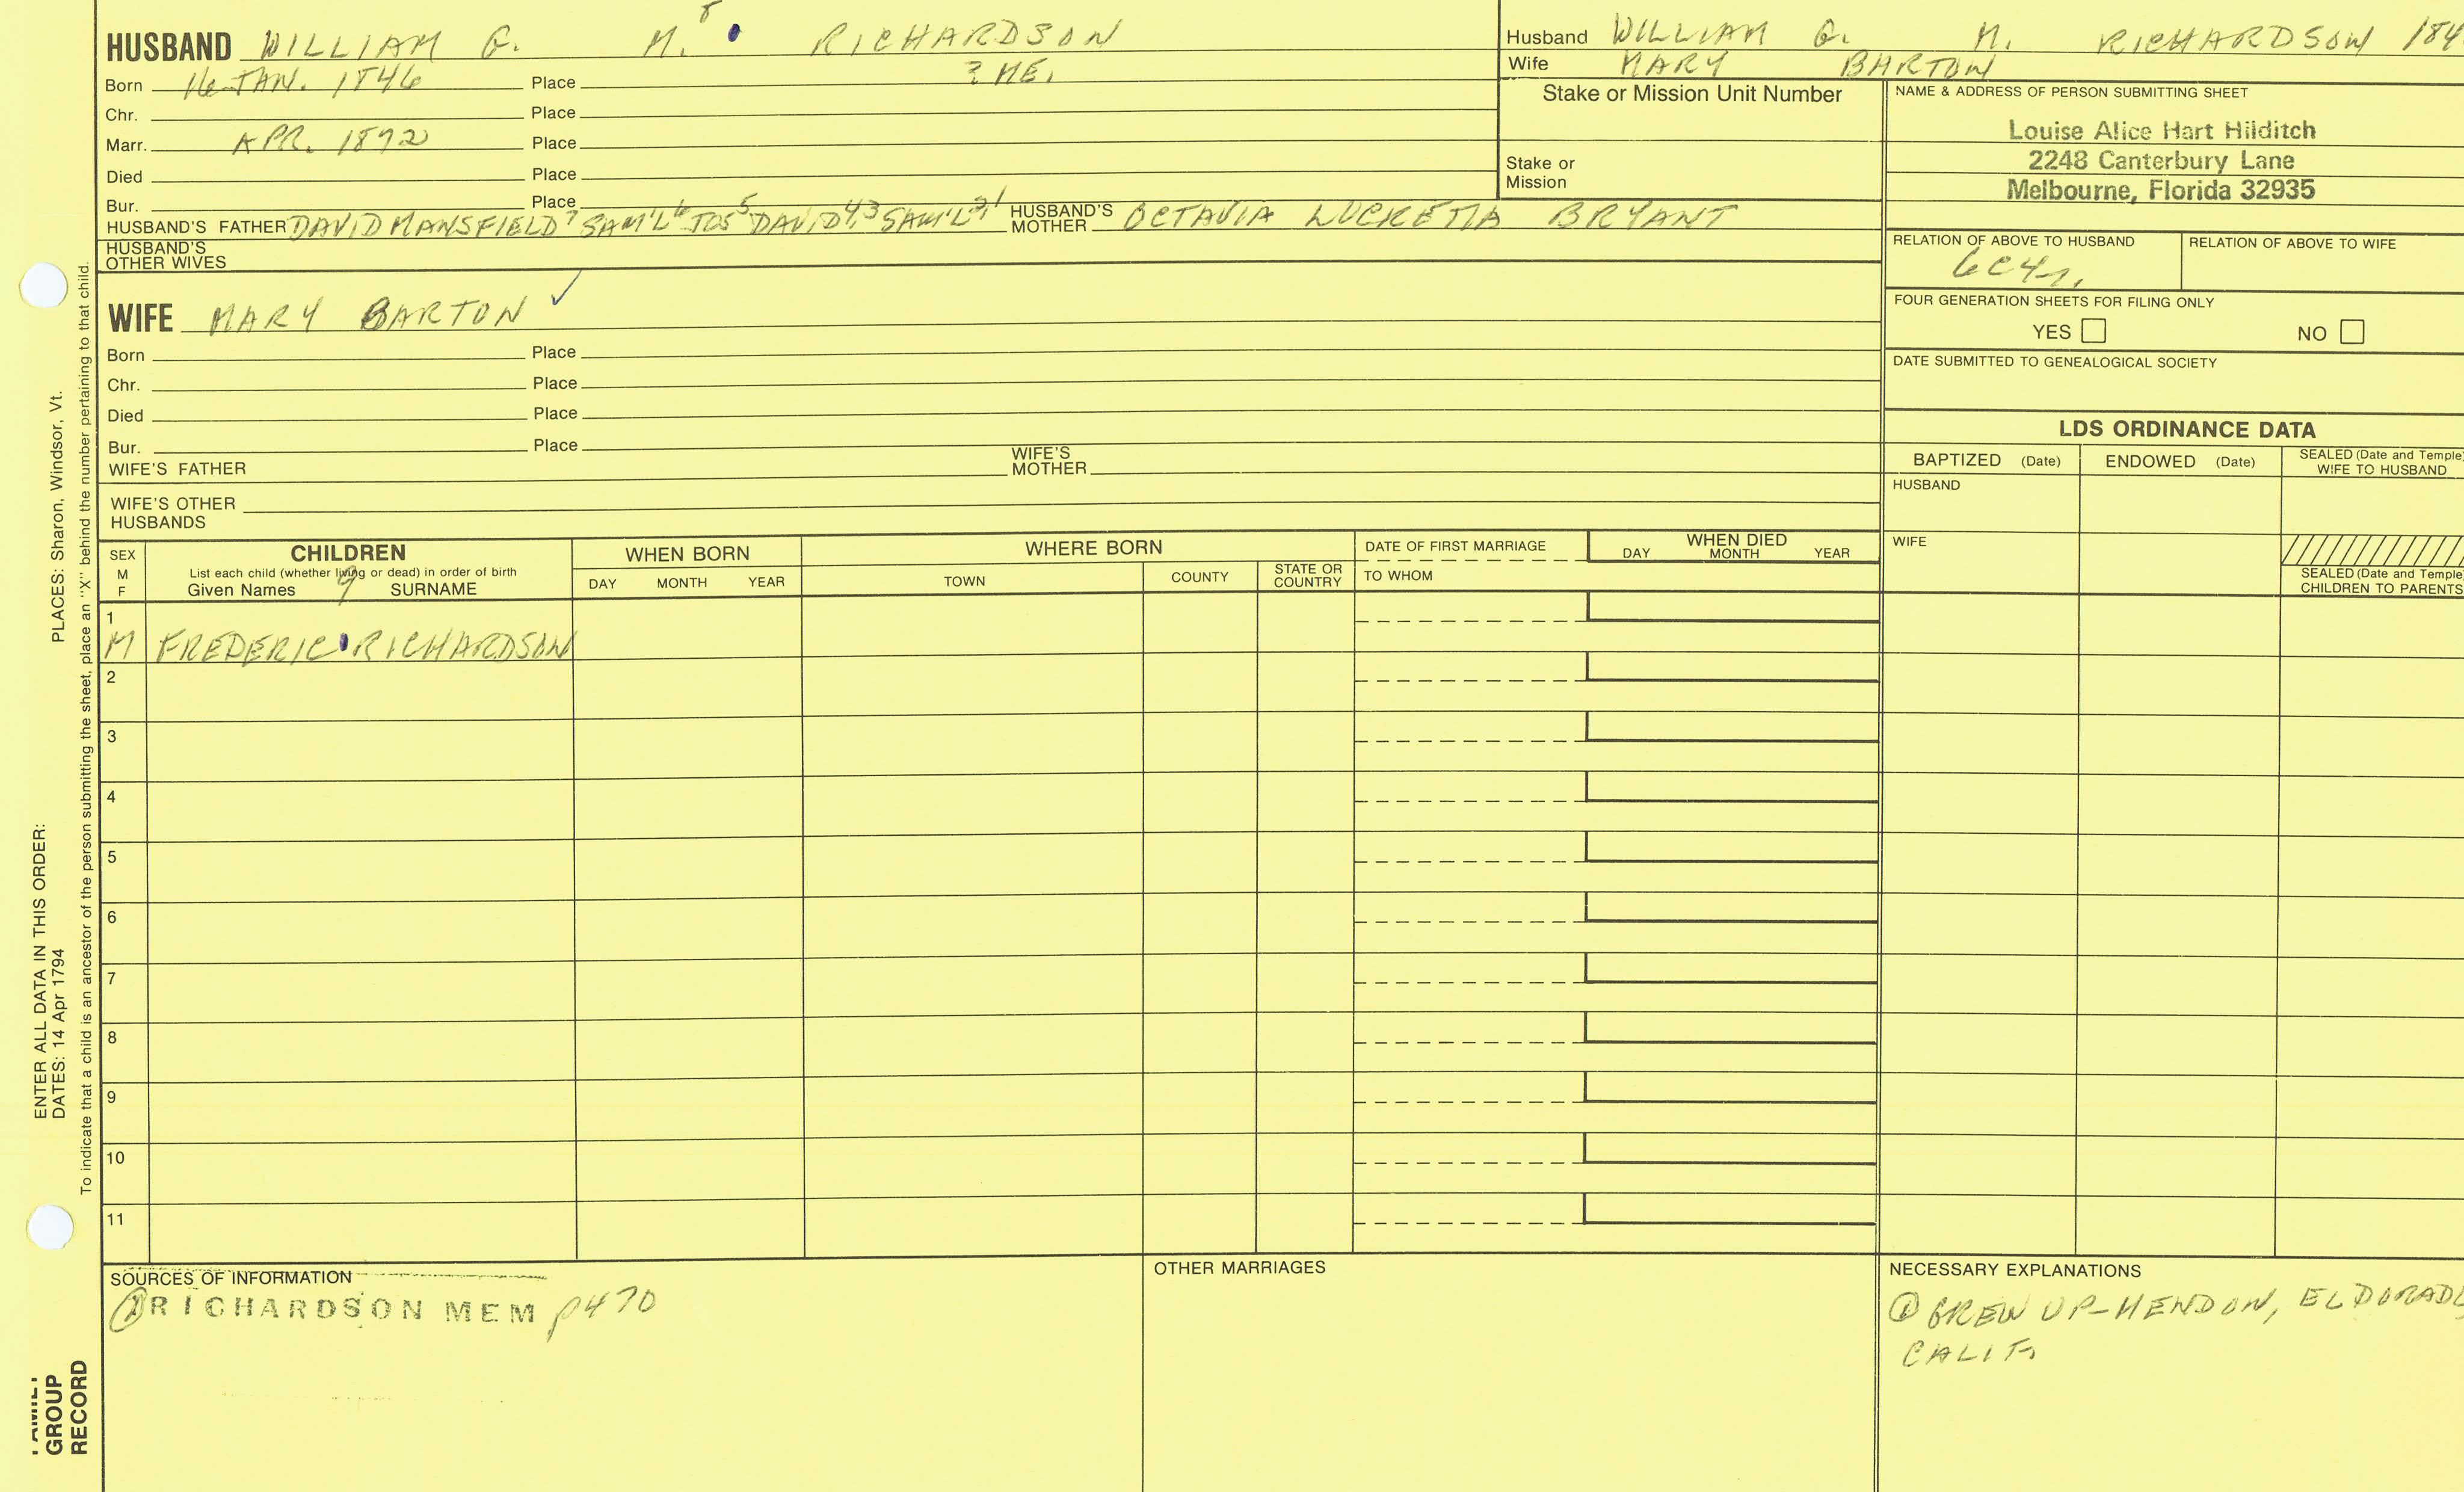 HUSBAND WILLIAM G. M. 8 RICHARDSON
Born 16 JAN. 1846 Place ? ME.
Chr. Place
Marr. APR. 1872 Place
Died Place
Bur. Place
HUSBAND'S FATHER DAVID MANSFIELD 7 SAM'L 6 JOS 5 DAVID 4,3 SAM'L 2,1 HUSBAND'S MOTHER OCTAVIA LUCRETIA BRYANT
HUSBAND'S OTHER WIVES
WIFE MARY BARTON ✓
Born Place
Chr. Place
Died Place
Bur. Place
WIFE'S FATHER WIFE'S MOTHER
WIFE'S OTHER HUSBANDS
Husband WILLIAM G. M. RICHARDSON 184
Wife MARY BARTON
Stake or Mission Unit Number
Stake or Mission
NAME & ADDRESS OF PERSON SUBMITTING SHEET
Louise Alice Hart Hilditch
2248 Canterbury Lane
Melbourne, Florida 32935
RELATION OF ABOVE TO HUSBAND RELATION OF ABOVE TO WIFE
6C4r.
FOUR GENERATION SHEETS FOR FILING ONLY
YES NO
DATE SUBMITTED TO GENEALOGICAL SOCIETY
LDS ORDINANCE DATA
BAPTIZED (Date) ENDOWED (Date) SEALED (Date and Temple) WIFE TO HUSBAND
HUSBAND
WIFE
SEALED (Date and Temple) CHILDREN TO PARENTS
SEX M F
CHILDREN
List each child (whether living or dead) in order of birth
Given Names 9 SURNAME
WHEN BORN
DAY MONTH YEAR
WHERE BORN
TOWN COUNTY STATE OR COUNTRY
DATE OF FIRST MARRIAGE
TO WHOM
WHEN DIED
DAY MONTH YEAR
1
M FREDERIC RICHARDSON
2
3
4
5
6
7
8
9
10
11
SOURCES OF INFORMATION
① RICHARDSON MEM p470
OTHER MARRIAGES
NECESSARY EXPLANATIONS
① GREW UP-HENDON, ELDORADO
CALIF.
PLACES: Sharon, Windsor, Vt.
ENTER ALL DATA IN THIS ORDER:
DATES: 14 Apr 1794
To indicate that a child is an ancestor of the person submitting the sheet, place an "X" behind the number pertaining to that child.
FAMILY
GROUP
RECORD